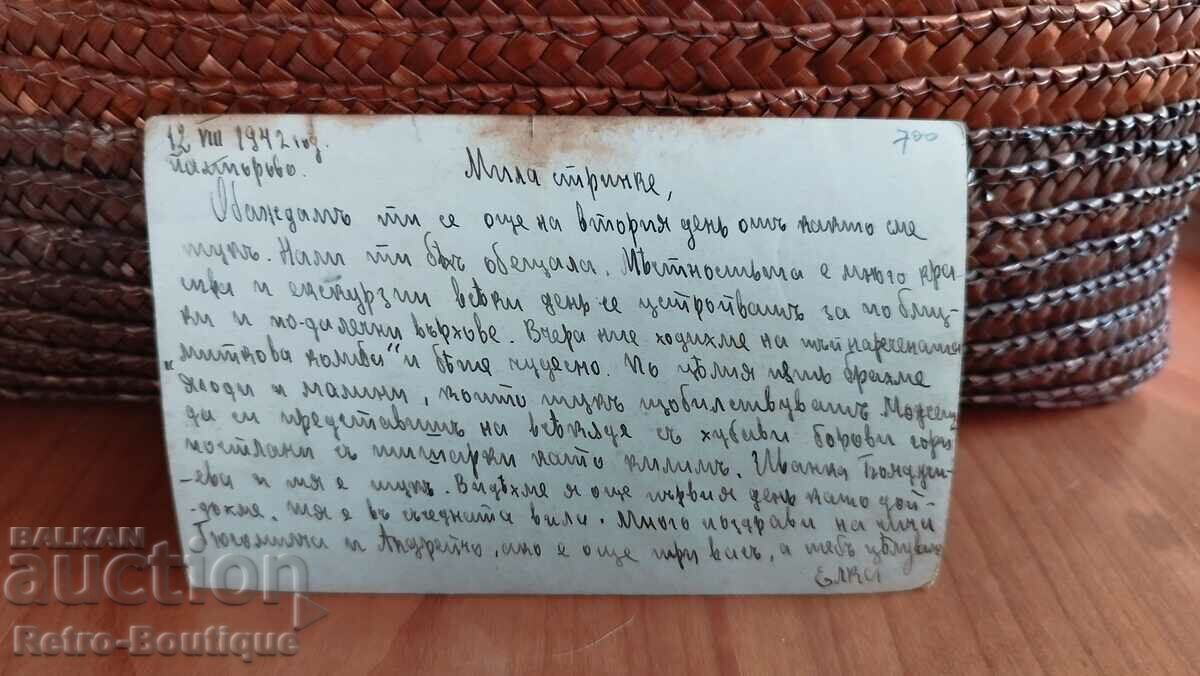 12 VIII 1942 год.
700
Пахтърово.
Мила стринке,
Обаждамъ ти се още на втория день отъ както сме
тукъ. Нали ти бѣхъ обещала. Мѣстностьта е много кра-
сива и екскурзии всѣки день се устройватъ за по близ-
ки и по-далечни върхове. Вчера ние ходихме на тъй наречената
"миткова комба" и бѣше чудесно. По цѣлия пъть брахме
ягоди и малини, които тукъ изобилствуватъ. Можешъ
да си представишъ на всѣкяде съ хубави борови гори
постлани съ шишарки като килимъ. Иванка
-ева и тя е тукъ. Видѣхме я още първия день като дой-
-дохме, тя е въ съседната вила. Много поздрави на чичи
и Андрейчо, ако е още при васъ, а тебъ цѣлувамъ
Елка
BALKAN
auction
Retro-Boutique